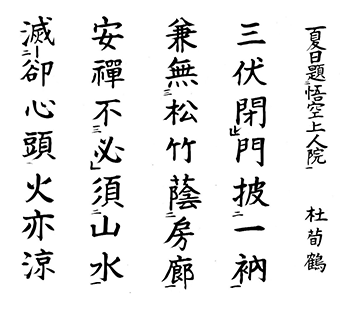 夏日題悟空上人院 杜荀鶴
三伏閉門披一衲
兼無松竹蔭房廊
安禪不必須山水
滅卻心頭火亦涼